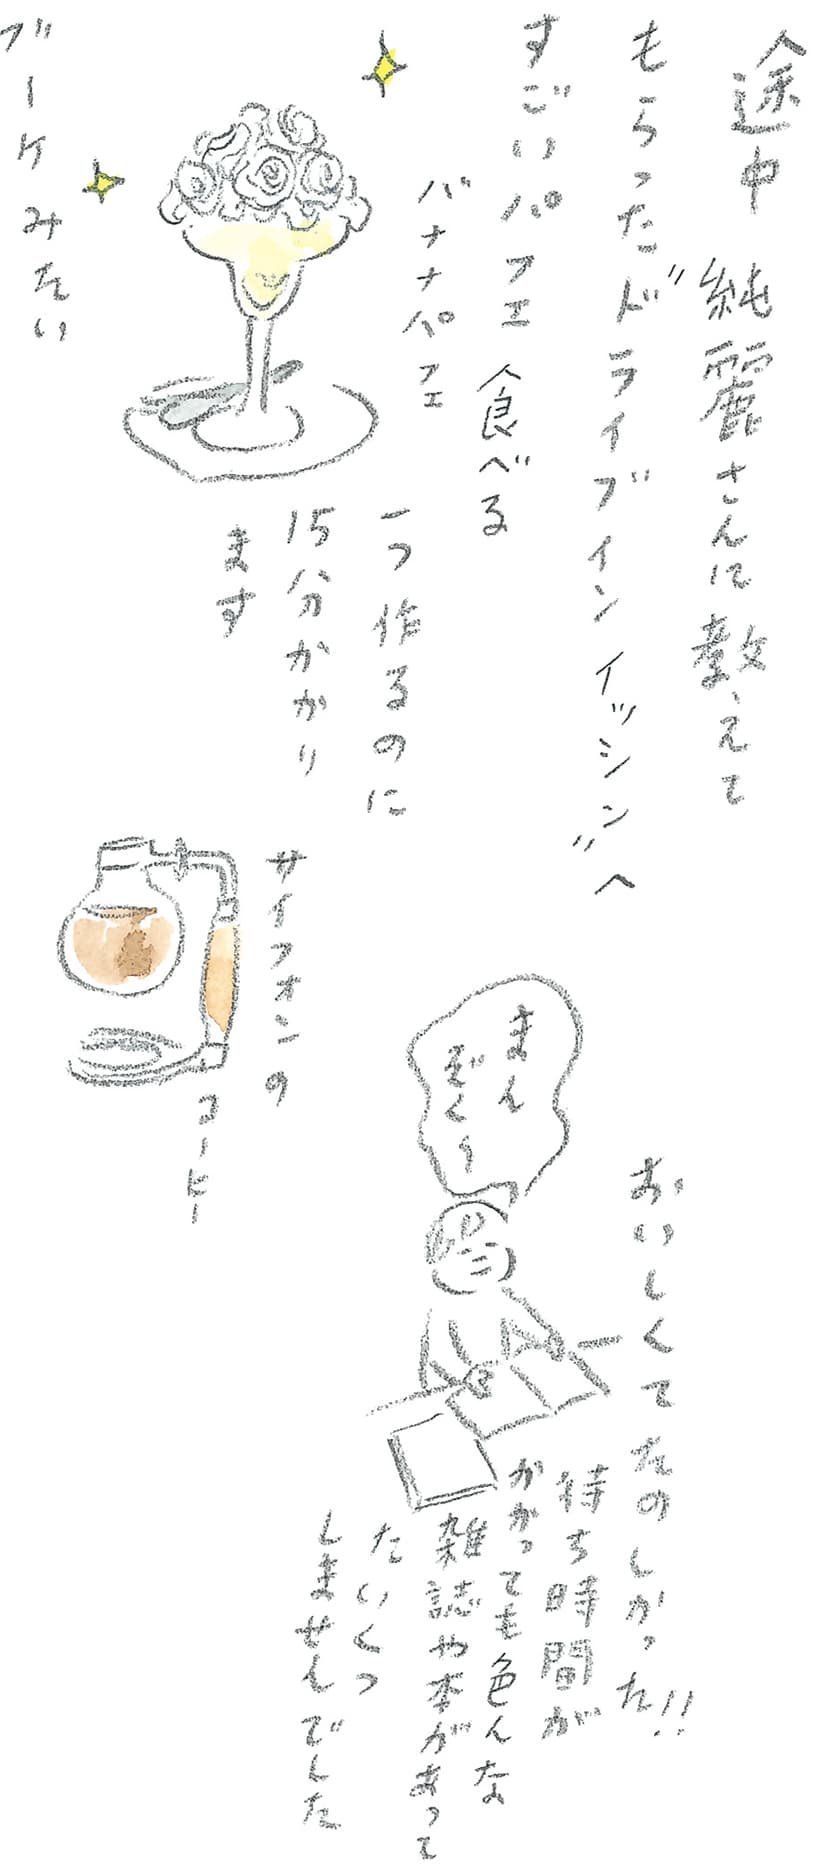 途中 純麗さんに教えて
もらったドライブイン"イッシン"へ
すごいパフェ 食べる
バナナパフェ
ブーケみたい
一つ作るのに
15分かかり
ます
サイフォンの
コーヒー
まん
ぞく〜
おいしくてたのしかった!!
待ち時間が
かかっても色んな
雑誌や本があって
たいくつ
しませんでした